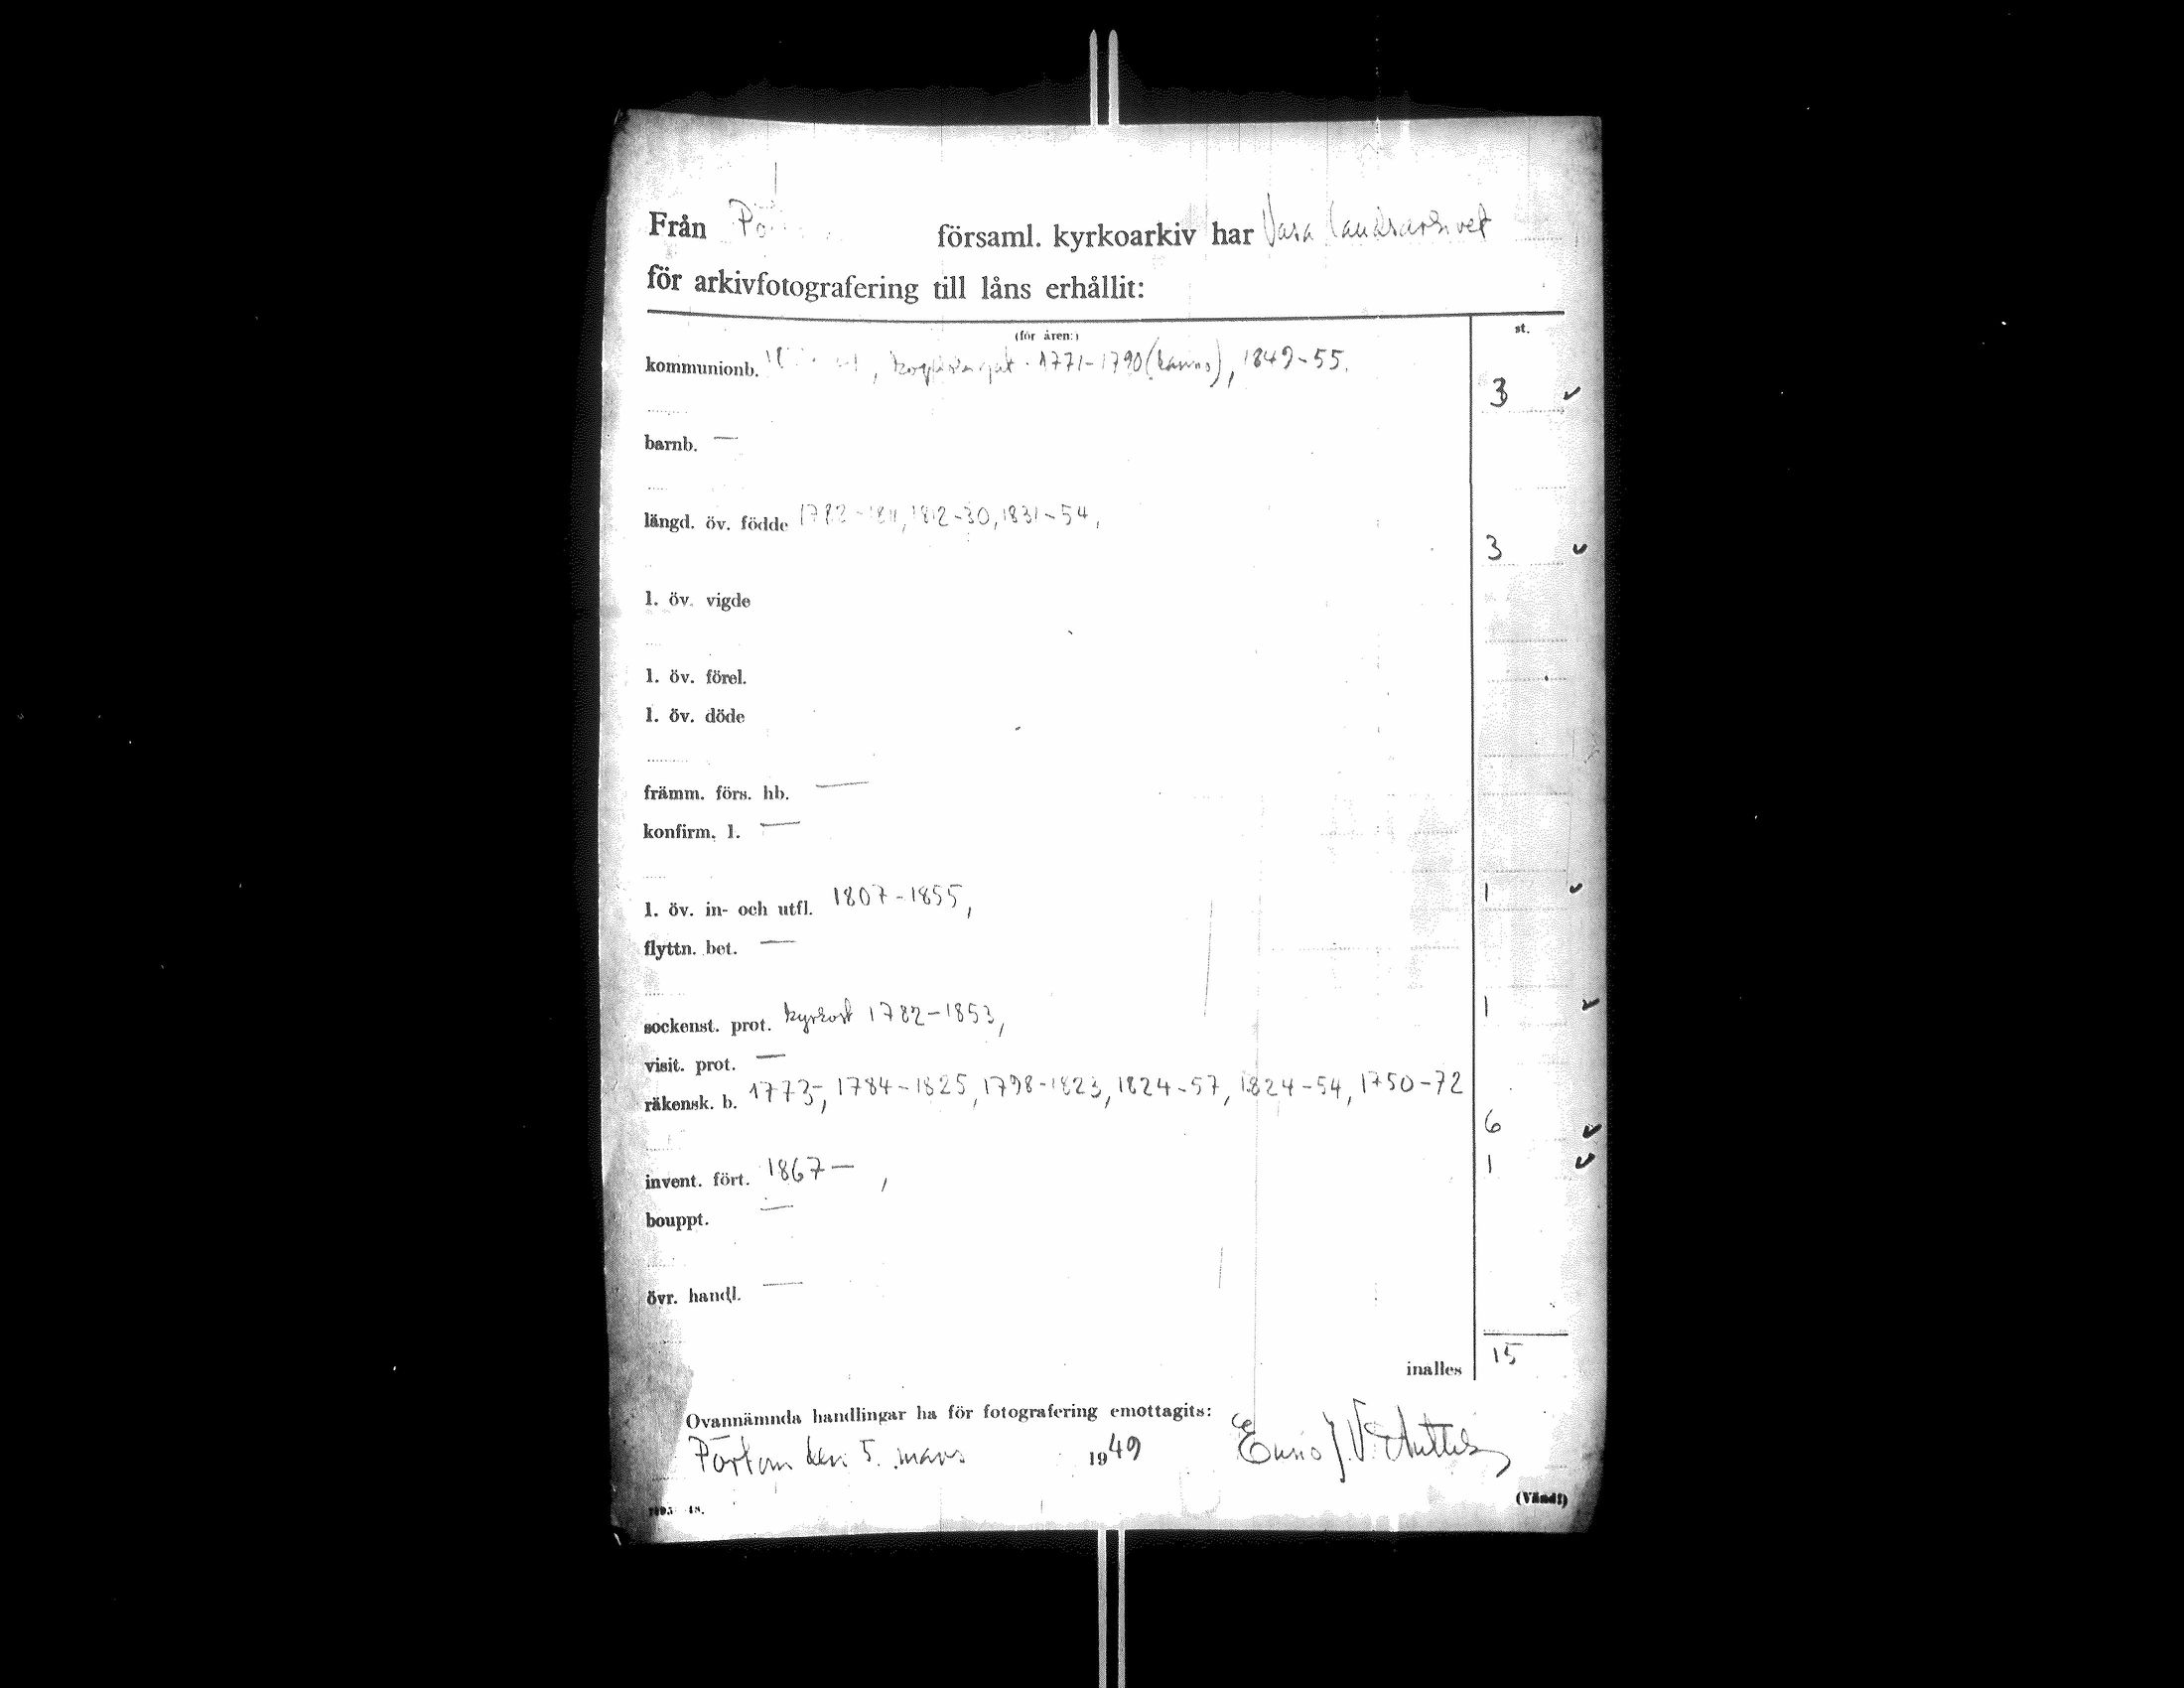 Från Pö församl. kyrkoarkiv har Vasa landsarkivet
för arkivfotografering till låns erhållit:
(för åren:) st.
kommunionb. 1771-1790 (kanns), 1849-55.
3 ✓
barnb. —
längd. öv. födde 1782-1811, 1812-30, 1831-54,
3 ✓
l. öv. vigde
l. öv. förel.
l. öv. döde
främm. förs. hb. —
konfirm. l. —
l. öv. in- och utfl. 1807-1855, 1 ✓
flyttn. bet. —
sockenst. prot. kyrkost 1782-1853, 1 ✓
visit. prot. —
räkensk. b. 1773-, 1784-1825, 1798-1823, 1824-57, 1824-54, 1750-72
6 ✓
invent. fört. 1867—, 1 ✓
bouppt. —
övr. handl. —
inalles 15
Ovannämnda handlingar ha för fotografering emottagits:
Pörtom den 5. mars 1949
(Vänd!)